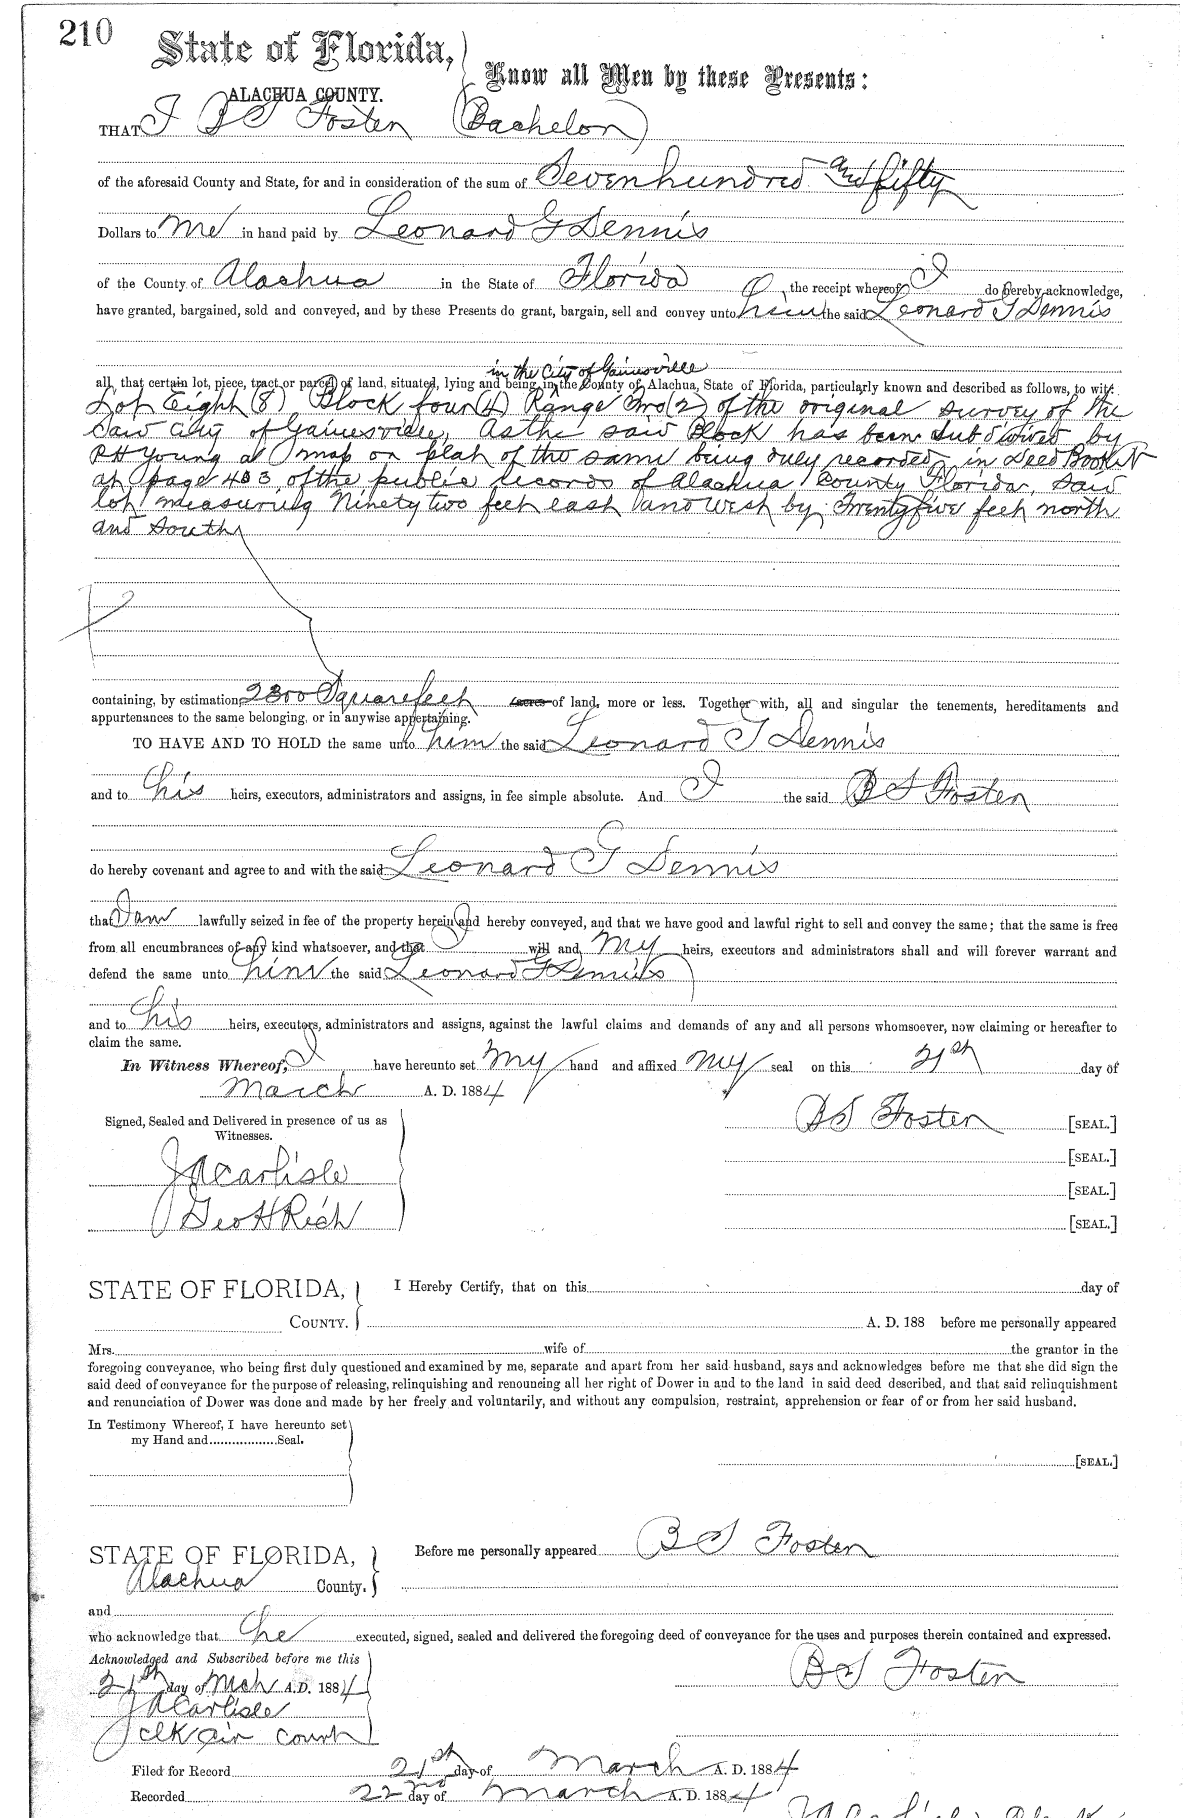 210
State of Florida,
ALACHUA COUNTY.
Know all Men by these Presents:
THAT I B S Foster (Bachelor)
of the aforesaid County and State, for and in consideration of the sum of Sevenhundred and fifty
Dollars to me in hand paid by Leonard G Dennis
of the County of Alachua in the State of Florida, the receipt whereof I do hereby acknowledge,
have granted, bargained, sold and conveyed, and by these Presents do grant, bargain, sell and convey unto him the said Leonard G Dennis
in the City of Gainesville
all, that certain lot, piece, tract or parcel of land, situated, lying and being in the County of Alachua, State of Florida, particularly known and described as follows, to wit:
Lot Eight (8) Block four (4) Range Two (2) of the original survey of the
said city of Gainesville, As the said Block has been sub divided by
P H Young a map or plat of the same being duly recorded in Deed Book N
at page 403 of the public records of Alachua County Florida, said
lot measuring Ninety two feet east and west by Twenty five feet north
and South
containing, by estimation, 2300 Square feet acres of land, more or less. Together with, all and singular the tenements, hereditaments and
appurtenances to the same belonging, or in anywise appertaining.
TO HAVE AND TO HOLD the same unto him the said Leonard G Dennis
and to his heirs, executors, administrators and assigns, in fee simple absolute. And I the said B S Foster
do hereby covenant and agree to and with the said Leonard G Dennis
that I am lawfully seized in fee of the property herein and hereby conveyed, and that we have good and lawful right to sell and convey the same; that the same is free
from all encumbrances of any kind whatsoever, and that I will and my heirs, executors and administrators shall and will forever warrant and
defend the same unto him the said Leonard G Dennis
and to his heirs, executors, administrators and assigns, against the lawful claims and demands of any and all persons whomsoever, now claiming or hereafter to
claim the same.
In Witness Whereof, I have hereunto set my hand and affixed my seal on this 21st day of
March A. D. 1884
Signed, Sealed and Delivered in presence of us as
Witnesses.
B S Foster [SEAL.]
[SEAL.]
J A Carlisle
[SEAL.]
Geo H Rich
[SEAL.]
STATE OF FLORIDA,
I Hereby Certify, that on this day of
COUNTY. A. D. 188 before me personally appeared
Mrs. wife of the grantor in the
foregoing conveyance, who being first duly questioned and examined by me, separate and apart from her said husband, says and acknowledges before me that she did sign the
said deed of conveyance for the purpose of releasing, relinquishing and renouncing all her right of Dower in and to the land in said deed described, and that said relinquishment
and renunciation of Dower was done and made by her freely and voluntarily, and without any compulsion, restraint, apprehension or fear of or from her said husband.
In Testimony Whereof, I have hereunto set
my Hand and..................Seal.
[SEAL.]
STATE OF FLORIDA,
Before me personally appeared B S Foster
Alachua County.
and
who acknowledge that he executed, signed, sealed and delivered the foregoing deed of conveyance for the uses and purposes therein contained and expressed.
Acknowledged and Subscribed before me this
21st day of Mch A.D. 1884
B S Foster
J A Carlisle
Clk Cir Court
Filed for Record 21st day of March A. D. 1884
Recorded 22nd day of March A. D. 1884